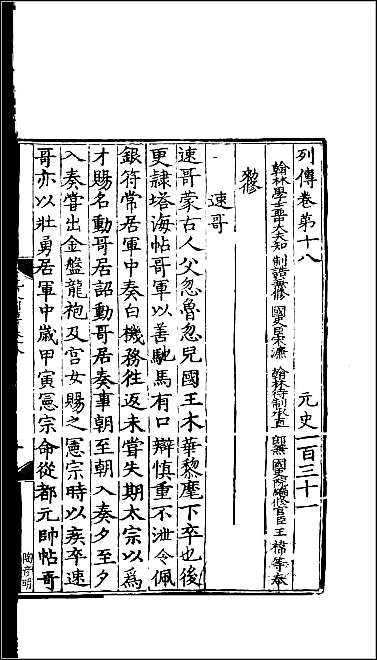 列傳卷第十八　元史一百三十一
翰林學士亞中大夫知制誥兼修國史臣宋濂　翰林待制承直郎兼國史院編修官臣王褘等奉
勑修
速哥
速哥蒙古人父忽魯忽兒國王木華黎麾下卒也後
更隸塔海帖哥軍以善馳馬有口辯慎重不泄令佩
銀符常居軍中奏白機務往返未嘗失期太宗以爲
才賜名動哥居詔動哥居奏事朝至朝入奏夕至夕
入奏嘗出金盤龍袍及宮女賜之憲宗時以疾卒速
哥亦以壯勇居軍中歲甲寅憲宗命從都元帥帖哥